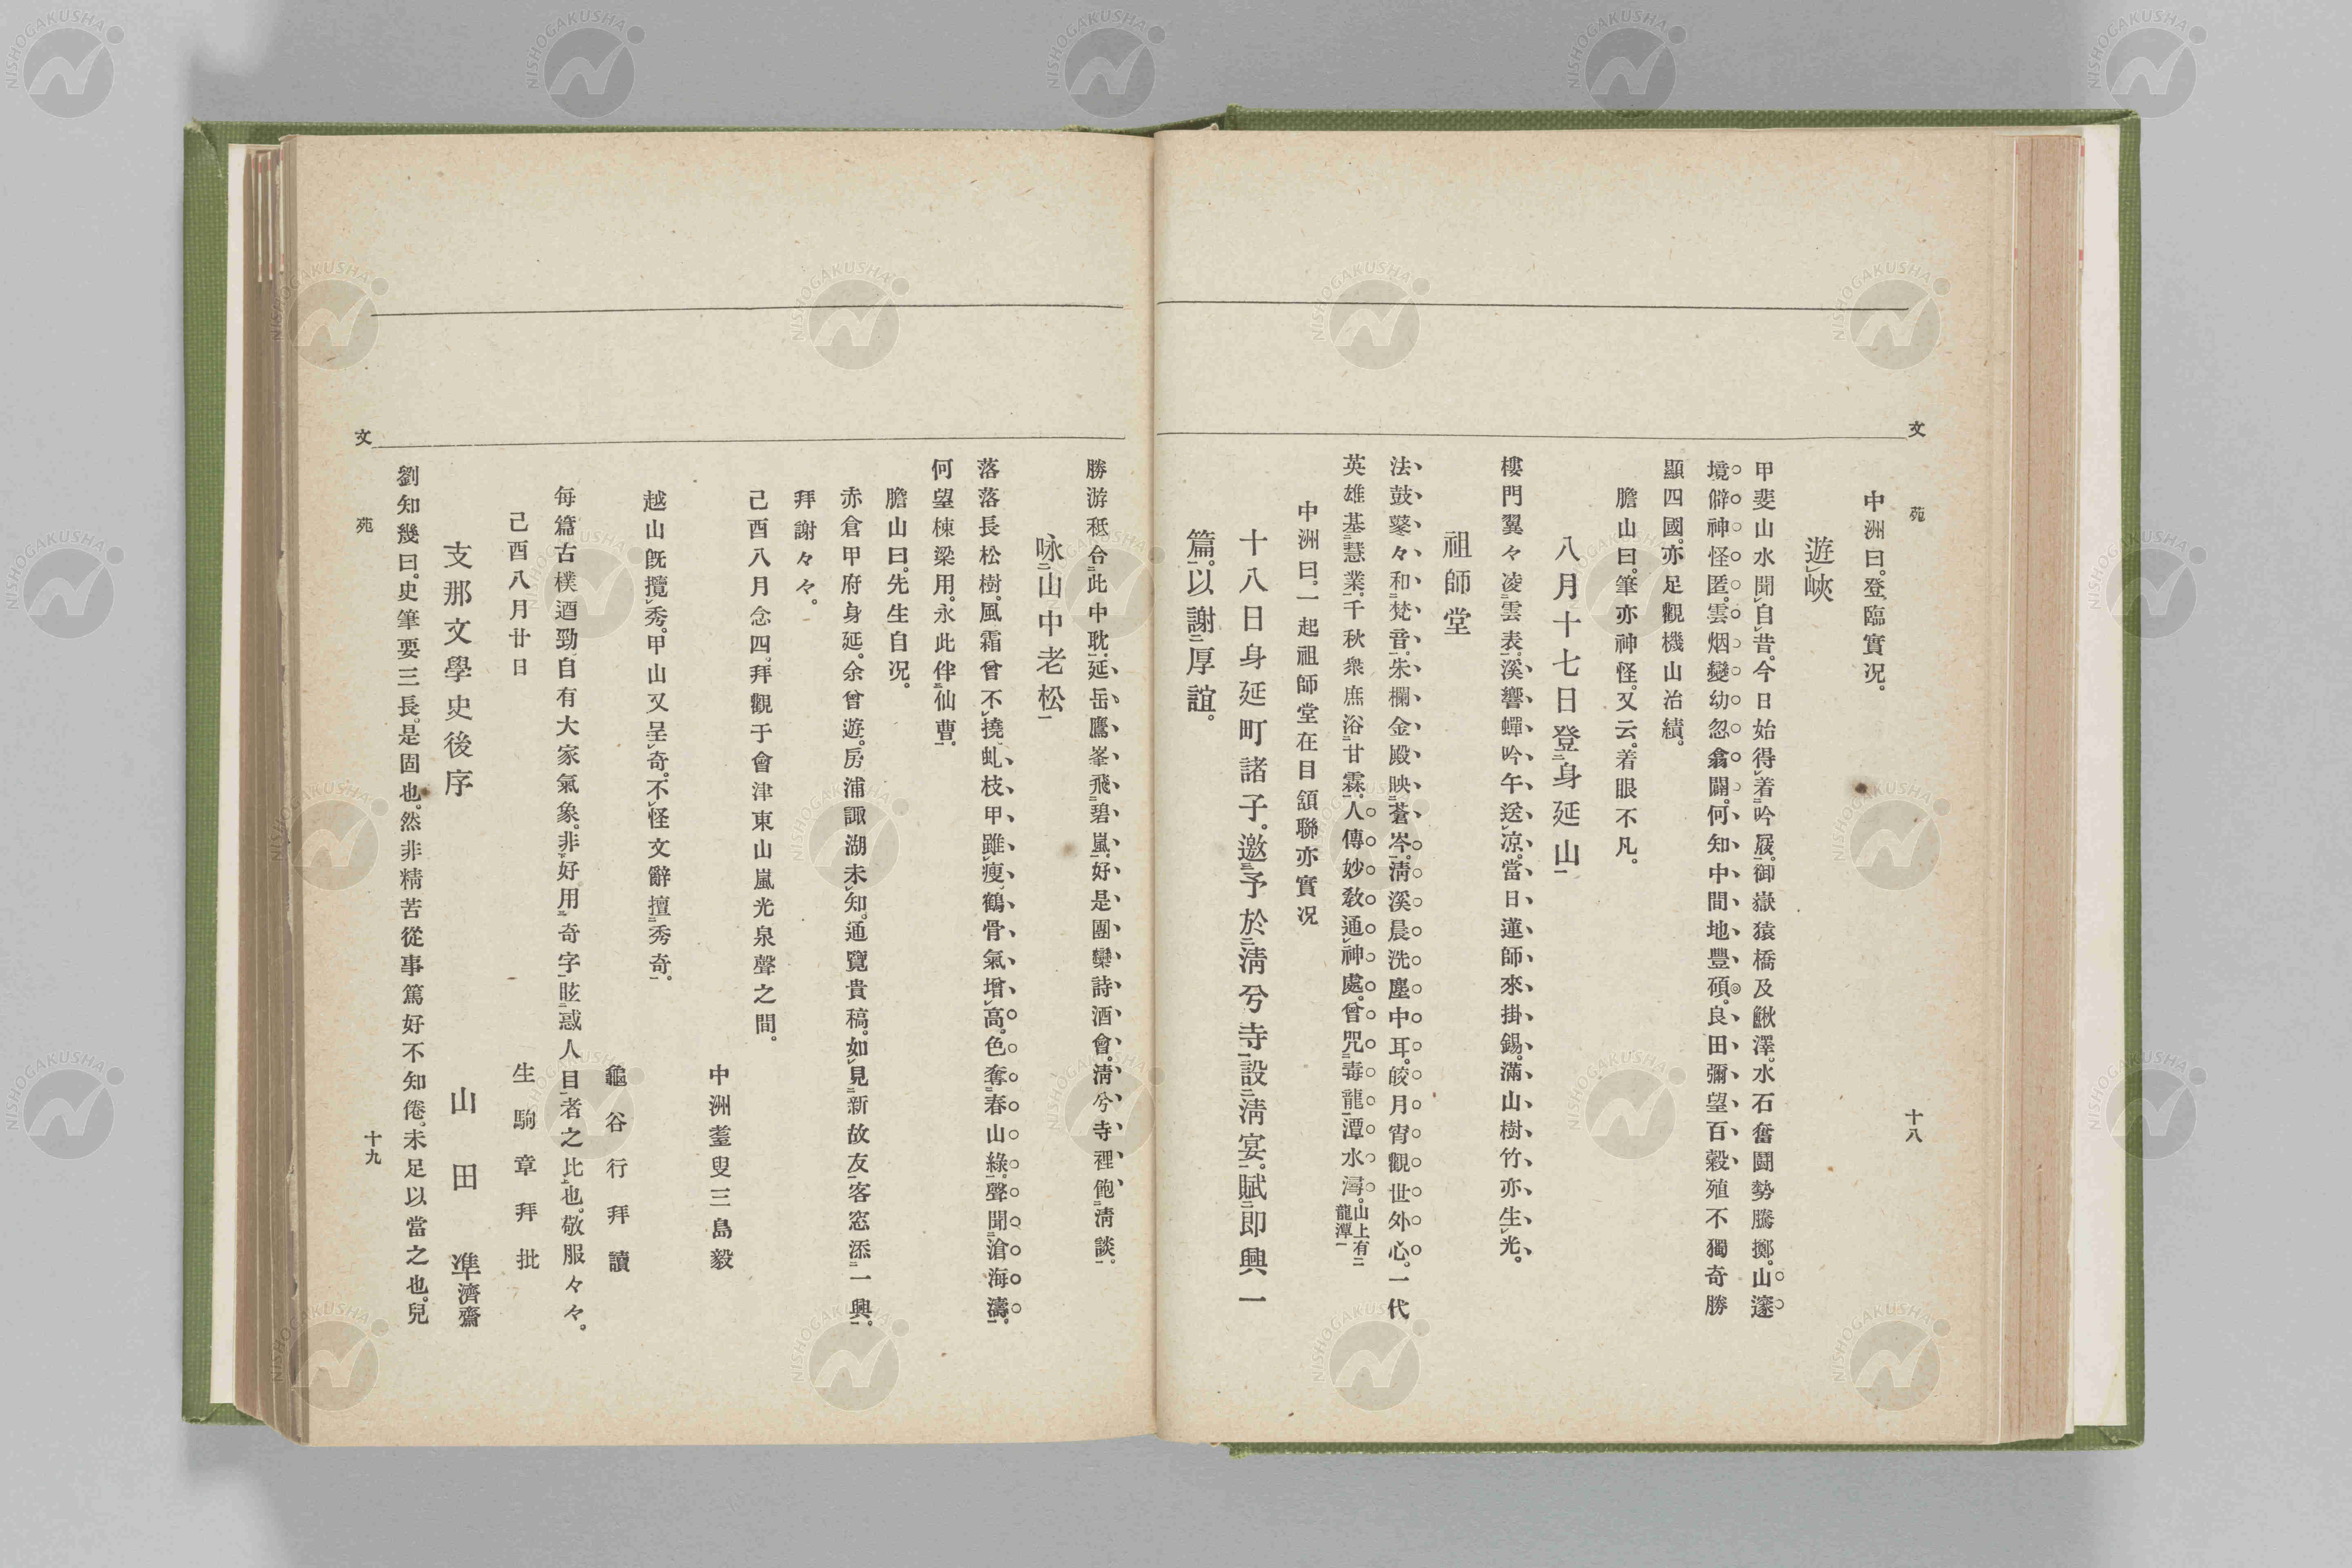 文苑
十八
中洲曰。登臨實況。
遊峽
甲斐山水聞自昔。今日始得着吟屐。御嶽猿橋及鰍澤。水石奮鬪勢騰擲。山邃
境僻神怪匿。雲烟變幼忽翕闢。何知中間地豐碩。良田彌望百穀殖不獨奇勝
顯四國。亦足觀機山治績。
膽山曰。筆亦神怪。又云。着眼不凡。
八月十七日登身延山
樓門翼々凌雲表。溪響蟬吟午送凉。當日蓮師來掛錫。滿山樹竹亦生光。
祖師堂
法鼓鼕々和梵音。朱欄金殿映蒼岑。淸溪晨洗塵中耳。皎月宵觀世外心。一代
英雄基慧業。千秋衆庶浴甘霖。人傳妙教通神處。曾咒毒龍潭水潯。山上有龍潭
中洲曰。一起祖師堂在目頷聯亦實況
十八日身延町諸子。邀予於淸兮寺設淸宴。賦即興一
篇。以謝厚誼。
勝游秪合此中耽。延岳鷹峯飛碧嵐。好是團欒詩酒會。淸兮寺裡飽淸談。
咏山中老松
落落長松樹。風霜曾不撓。虬枝甲雖瘦。鶴骨氣增高。色奪春山綠。聲聞滄海濤。
何望棟梁用。永此伴仙曹。
膽山曰。先生自況。
赤倉甲府身延。余曾遊。房浦諏湖未知。通覽貴稿。如見新故友。客窓添一興。
拜謝々々。
己酉八月念四。拜觀于會津東山嵐光泉聲之間。
中洲耋叟三島毅
越山既攬秀。甲山又呈奇。不怪文辭擅秀奇。
龜谷行拜讀
每篇古樸遒勁。自有大家氣象。非好用奇字眩惑人目者之比也。敬服々々。
己酉八月廿日
生駒章拜批
支那文學史後序
山田準濟齋
劉知幾曰。史筆要三長。是固也。然非精苦從事篤好不知倦。未足以當之也。兒
文苑
十九
NISHOGAKUSHA